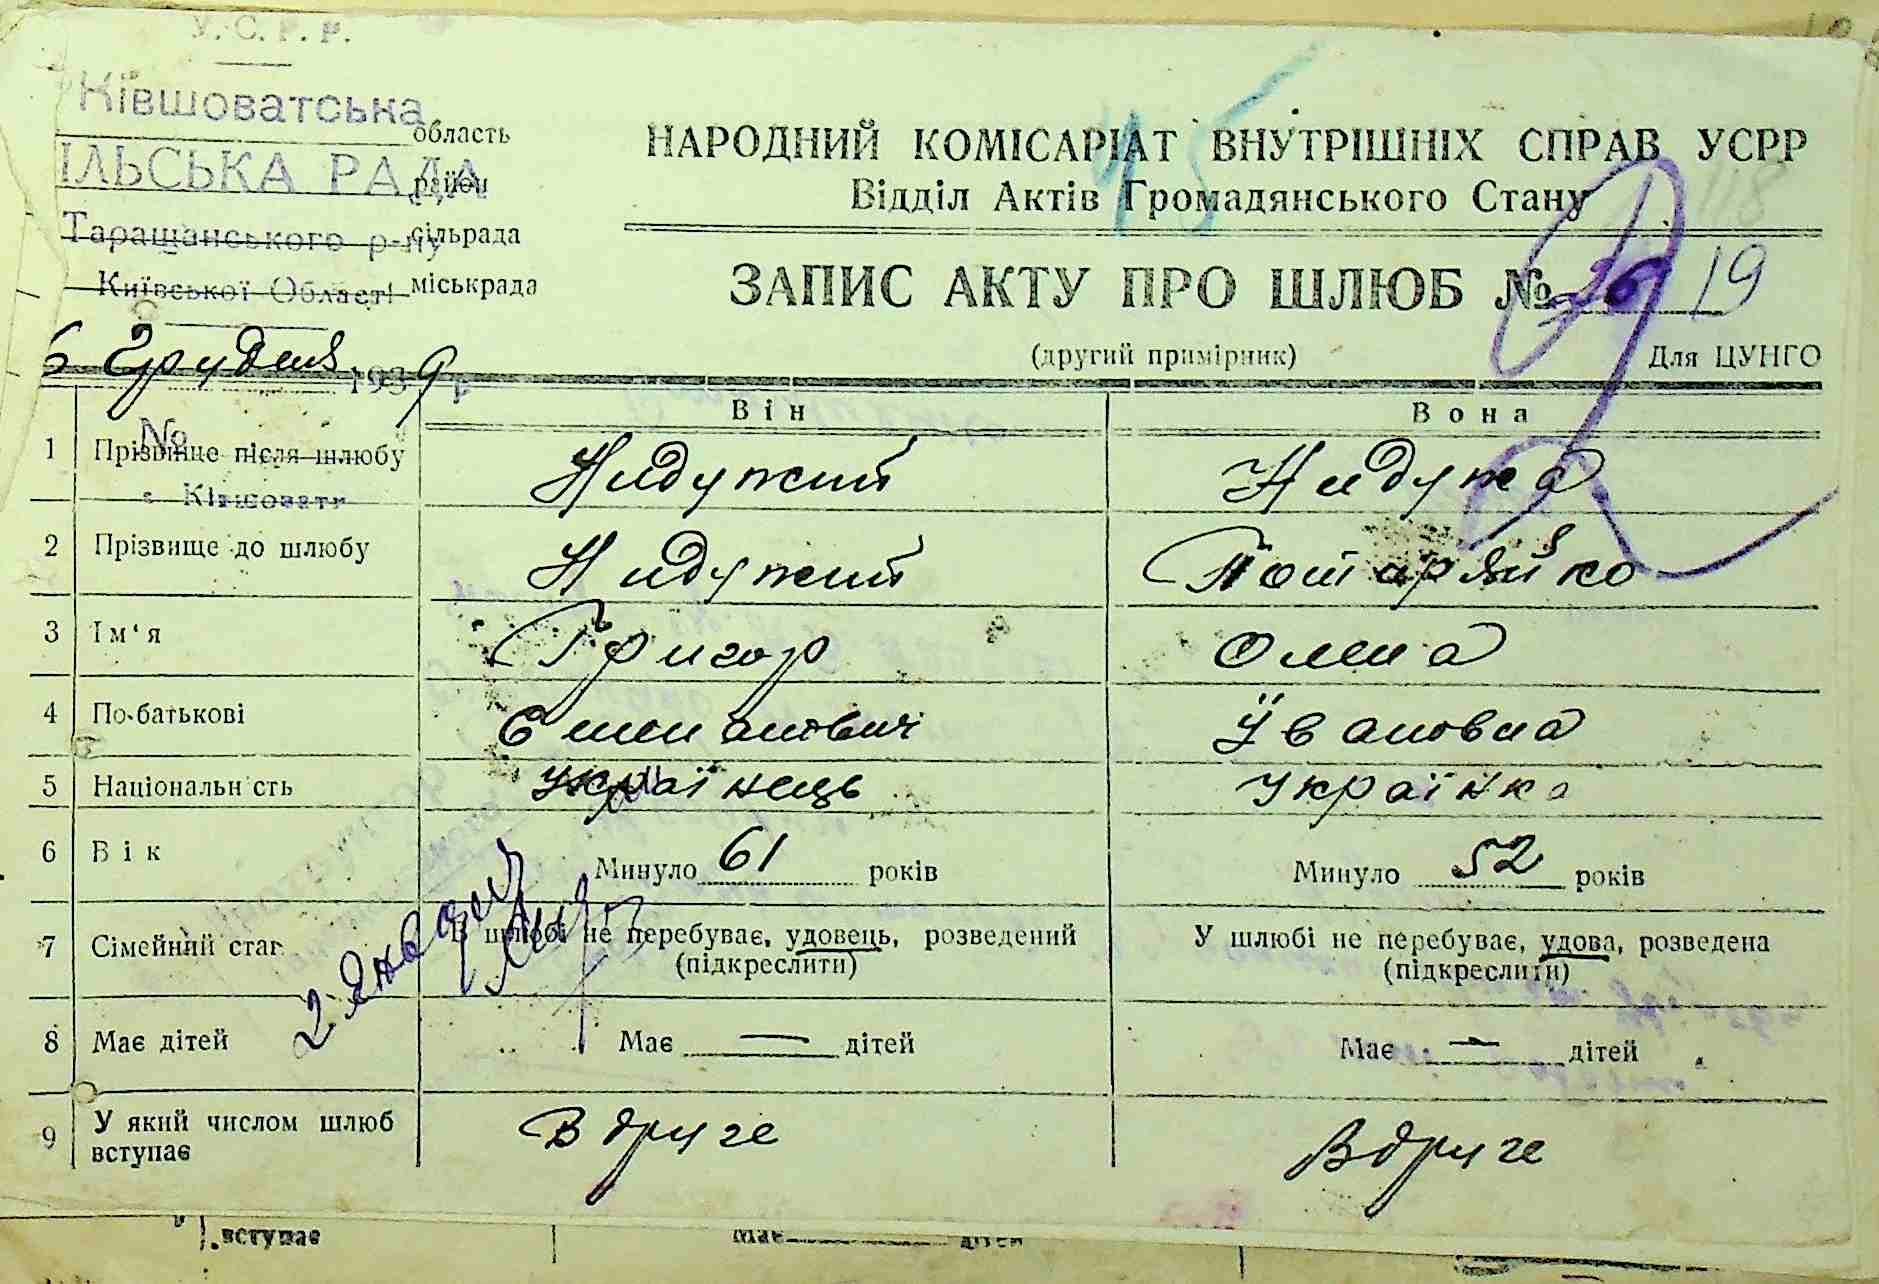 У. С. Р. Р.
Ківшоватська
область
ІЛЬСЬКА РАДА
район
Таращанського р-ну
сільрада
Київської Області
міськрада
НАРОДНИЙ КОМІСАРІАТ ВНУТРІШНІХ СПРАВ УСРР
Відділ Актів Громадянського Стану
118
ЗАПИС АКТУ ПРО ШЛЮБ № 19
6 Грудня 1939 р
(другий примірник) Для ЦУНГО
Він Вона
№
1 Прізвище після шлюбу Нидужий Нидужа
2 Прізвище до шлюбу Нидужий
3 Ім'я Григор Олена
4 По-батькові Івановна
5 Національн сть Українець Українка
6 Вік Минуло 61 років Минуло 52 років
7 Сімейний стан В шлюбі не перебуває, удовець, розведений У шлюбі не перебуває, удова, розведена
(підкреслити) (підкреслити)
8 Має дітей Має — дітей Має — дітей
9 У який числом шлюб вступає Вдруге Вдруге
вступає Має дітей